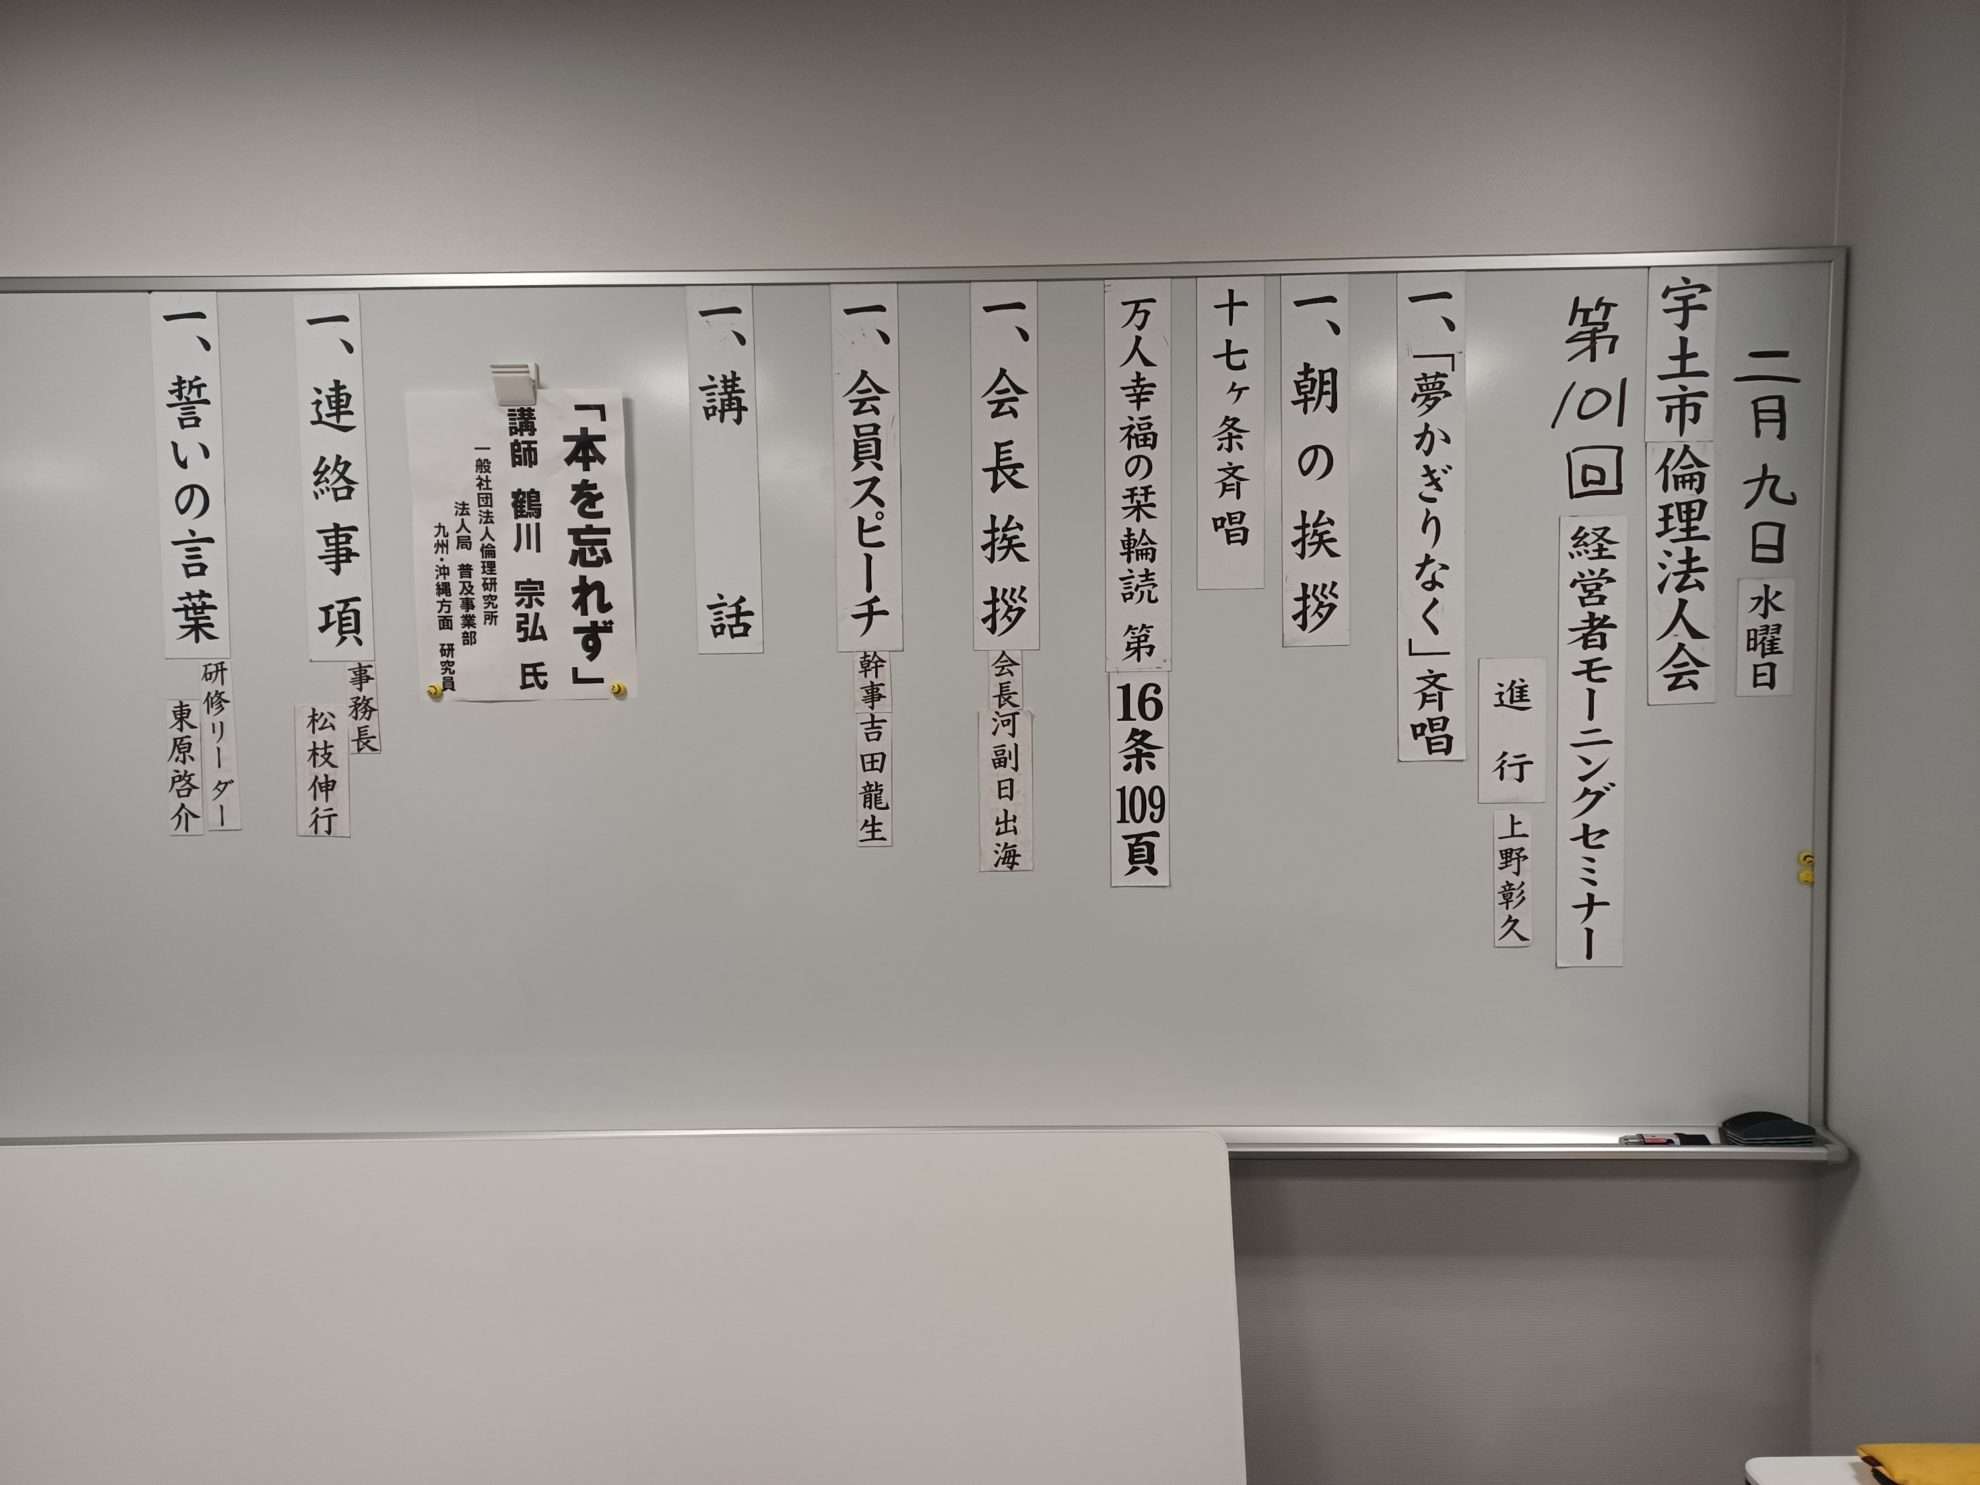 二月九日 水曜日
宇土市倫理法人会
第101回 経営者モーニングセミナー
進行 上野彰久
一、「夢かぎりなく」斉唱
一、朝の挨拶
十七ヶ条斉唱
万人幸福の栞輪読 第16条109頁
一、会長挨拶 会長 河副日出海
一、会員スピーチ 幹事 吉田龍生
一、講話
「本を忘れず」
講師 鶴川 宗弘 氏
一般社団法人倫理研究所
法人局 普及事業部
九州・沖縄方面 研究員
一、連絡事項
事務長
松枝伸行
一、誓いの言葉
研修リーダー
東原啓介